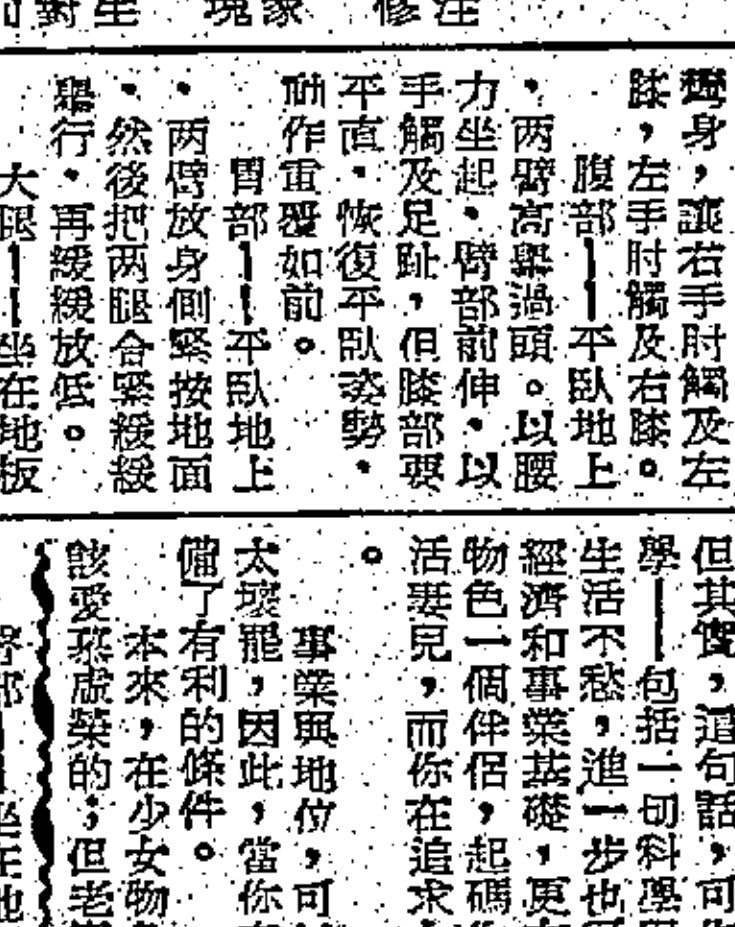 對生
塊家
修注
身，讓右手肘觸及左
膝，左手肘觸及右膝。
腹部——平臥地上
，两臂高舉過頭。以腰
力坐起，臂部前伸，以
手觸及足趾，但膝部要
平直，恢復平臥姿勢，
動作重覆如前。
胃部——平臥地上
，两臂放身側緊按地面
，然後把两腿合緊緩緩
舉行，再緩緩放低。
大腿——坐在地板
但其實，這句話，可
學——包括一切科學
生活不愁，進一步也
經濟和事業基礎，更
物色一個伴侶，起碼
活妻兒，而你在追求
。
事業與地位，可
太壞罷，因此，當你
備了有利的條件。
本來，在少女
該愛慕虛榮的；但老
部——坐在地